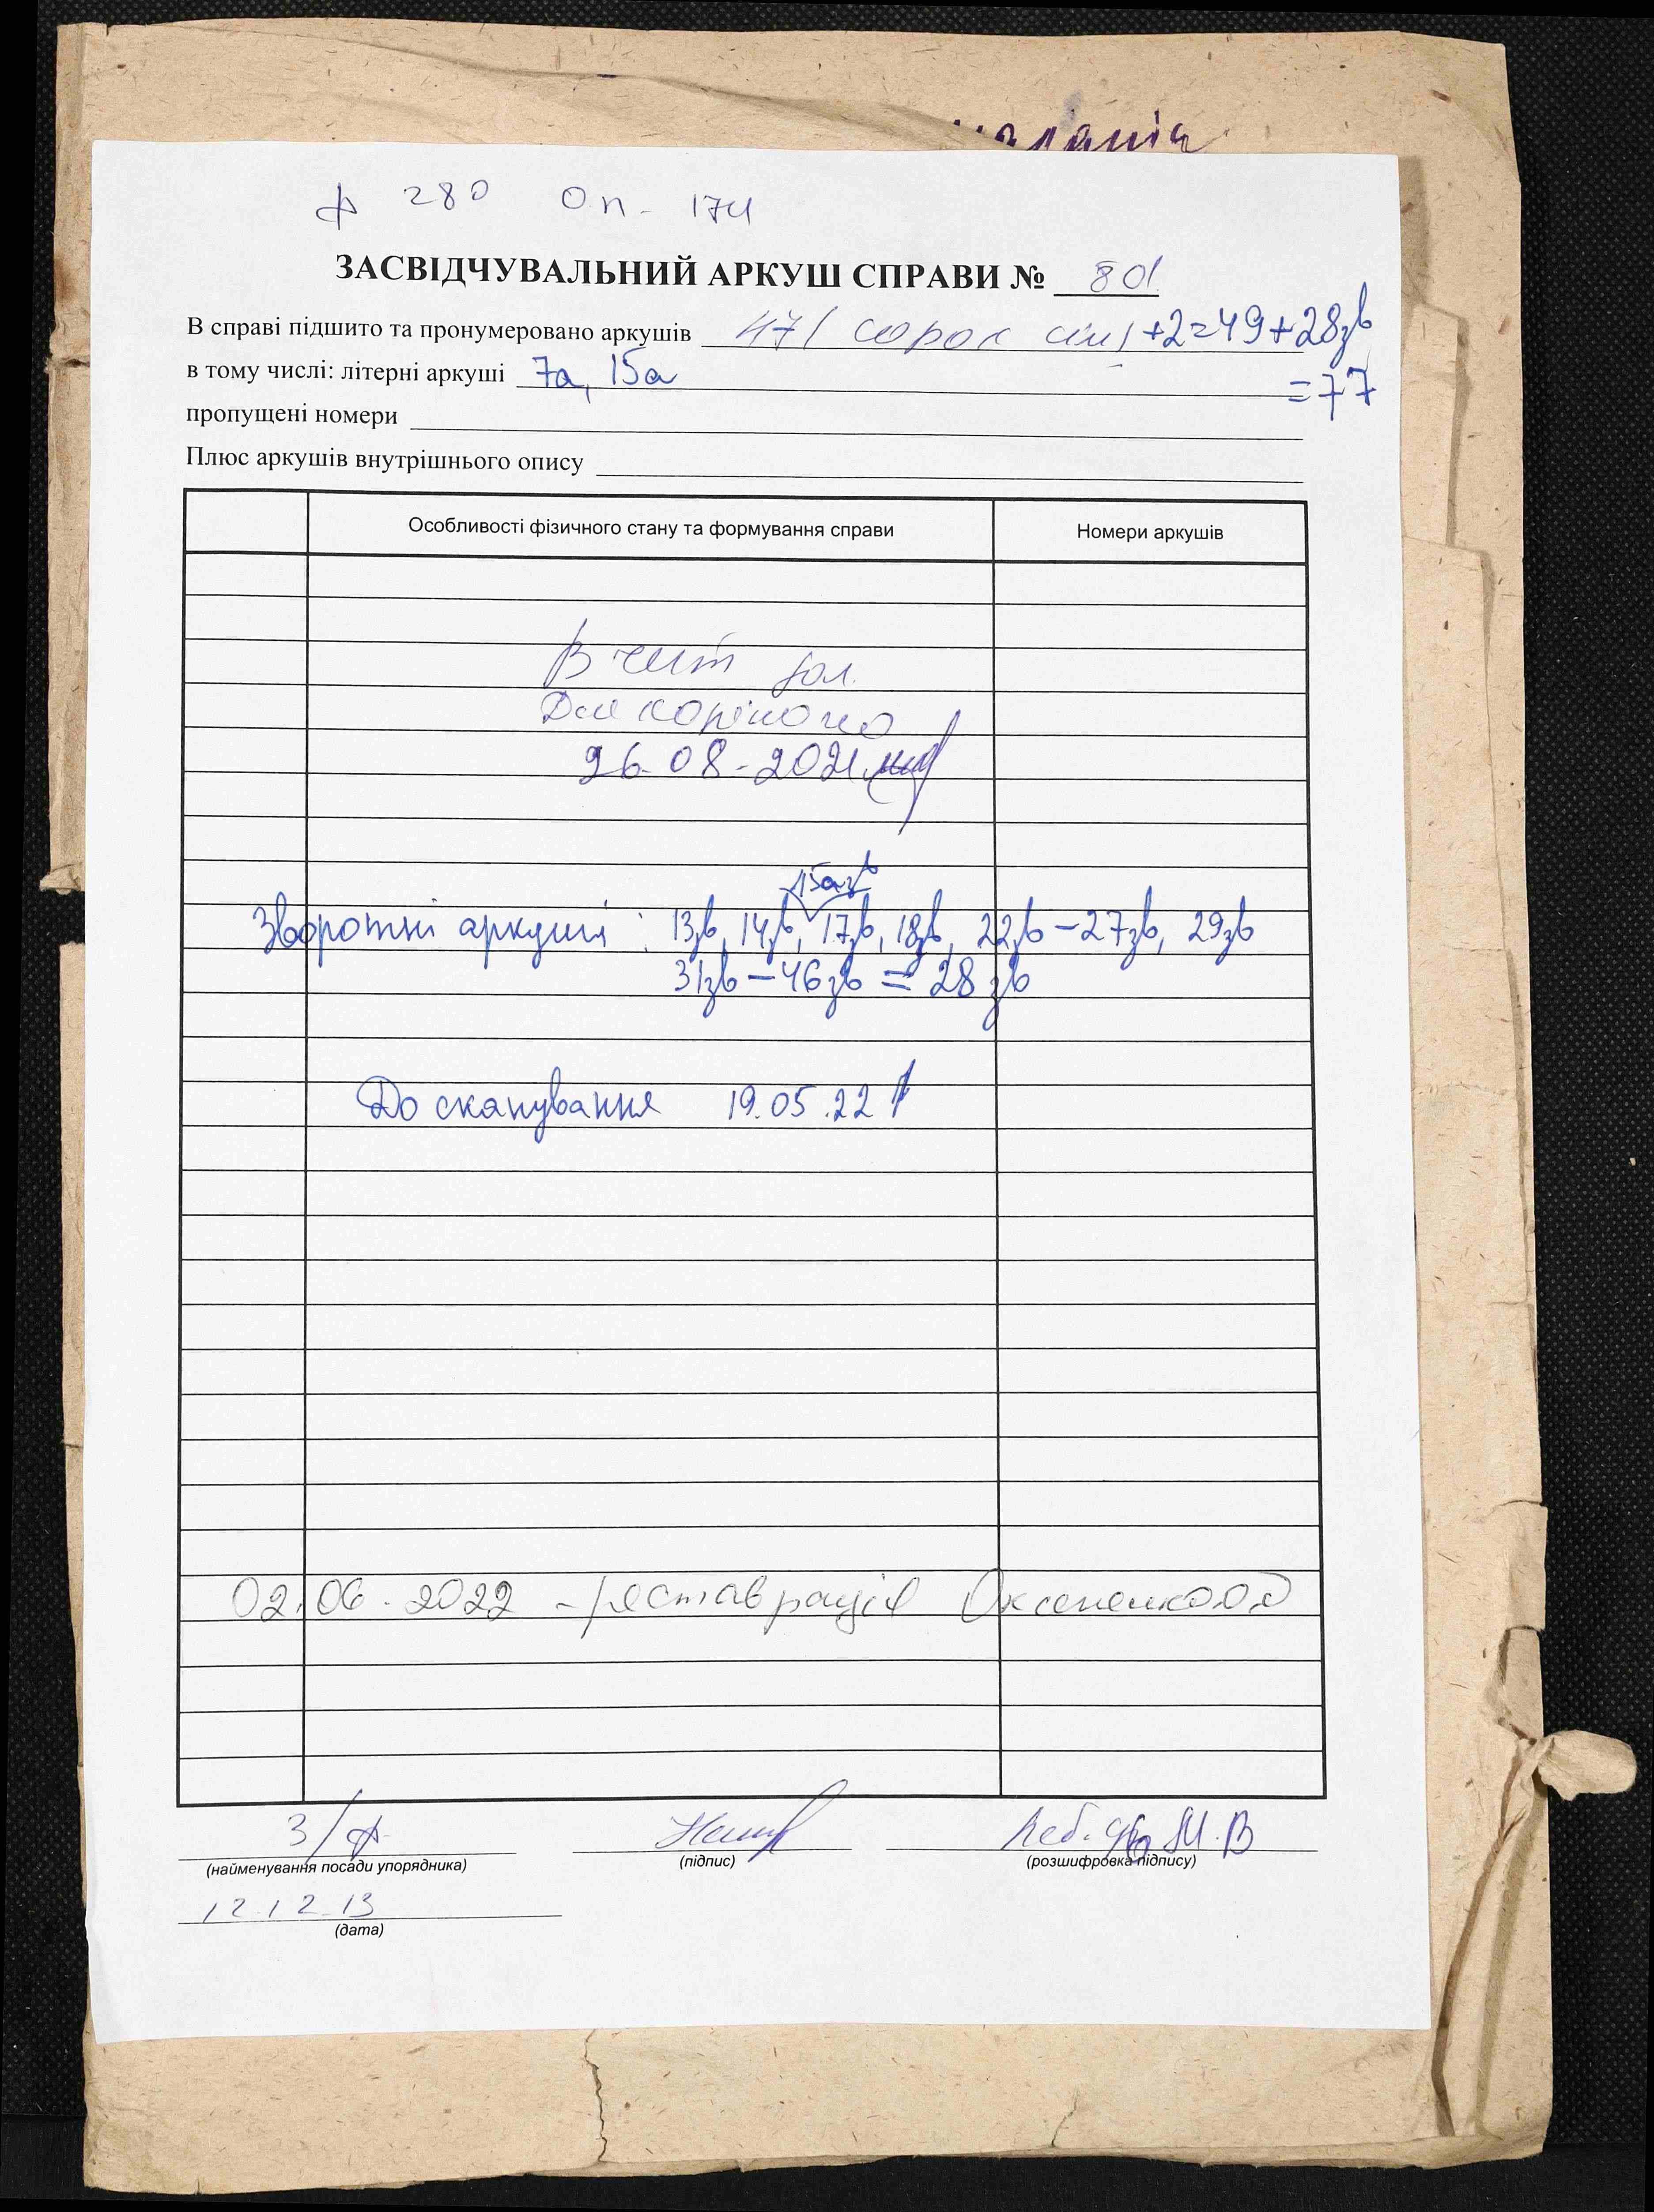 ф 280 Оп - 174
ЗАСВІДЧУВАЛЬНИЙ АРКУШ СПРАВИ № 801
В справі підшито та пронумеровано аркушів 47 ( сорок сім ) +2=49+28зв
=77
в тому числі: літерні аркуші 7а, 15а
пропущені номери
Плюс аркушів внутрішнього опису
Особливості фізичного стану та формування справи Номери аркушів
В чит зал.
26-08-2021
15азв
Зворотні аркуші : 13зв, 14зв, 17зв, 18зв, 22зв – 27зв, 29зв
31зв – 46зв = 28 зв
До сканування 19.05.22
02.06.2022 - реставрація
З/ф
(найменування посади упорядника) (підпис) (розшифровка підпису)
12.12.13
(дата)